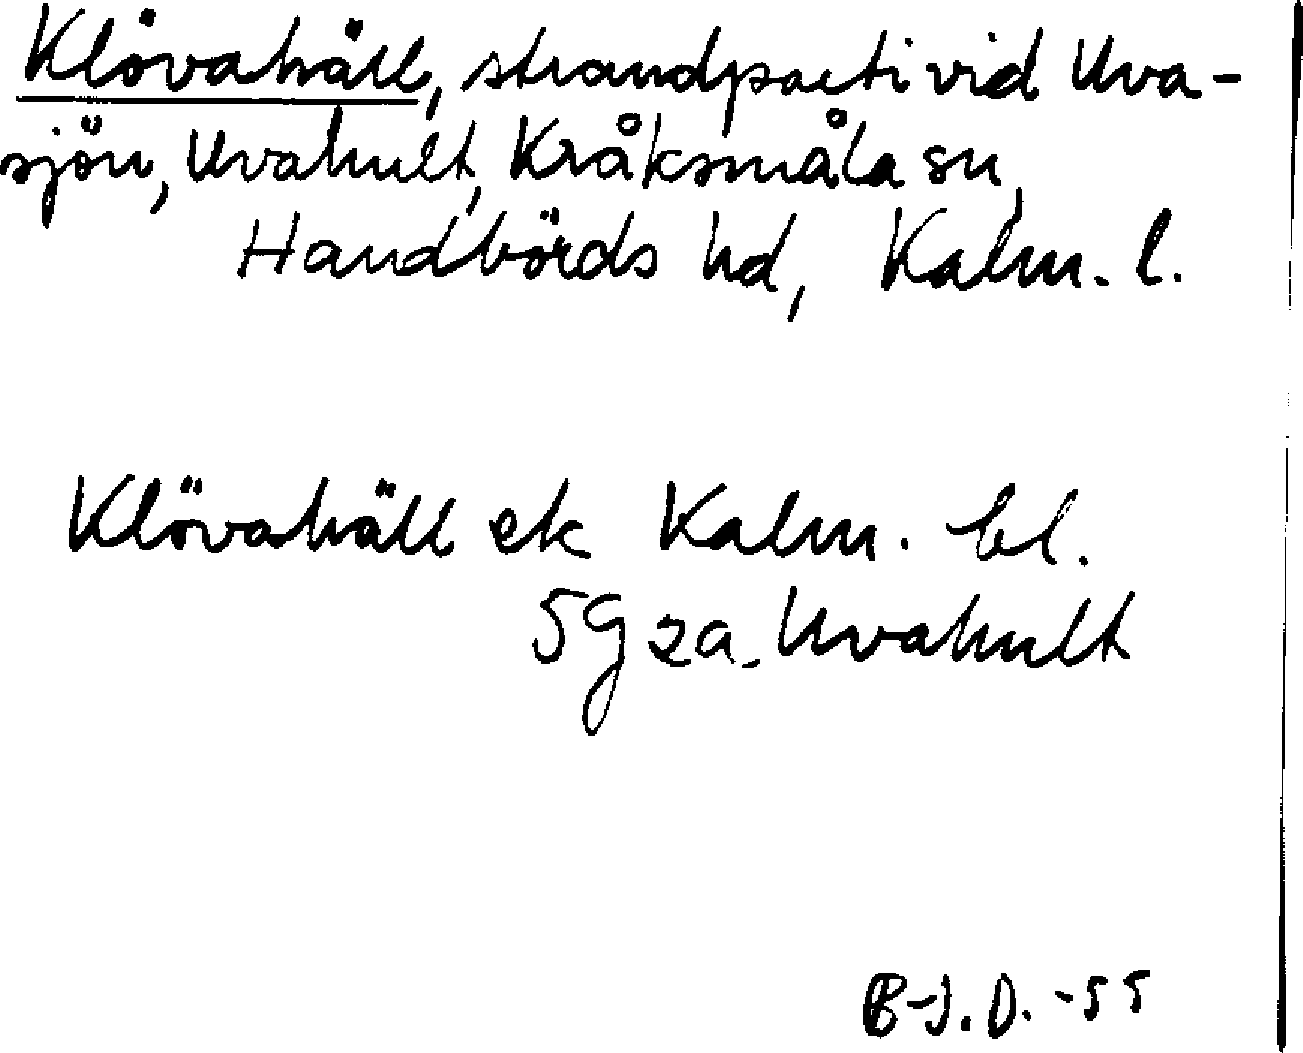 Klövahäll, strandparti vid Uva-
sjön, Uvahult, Kråksmåla sn,
Handbörds hd, Kalm. l.
Klövahäll ek Kalm. bl.
5g za. Uvahult
B-J.D. -55